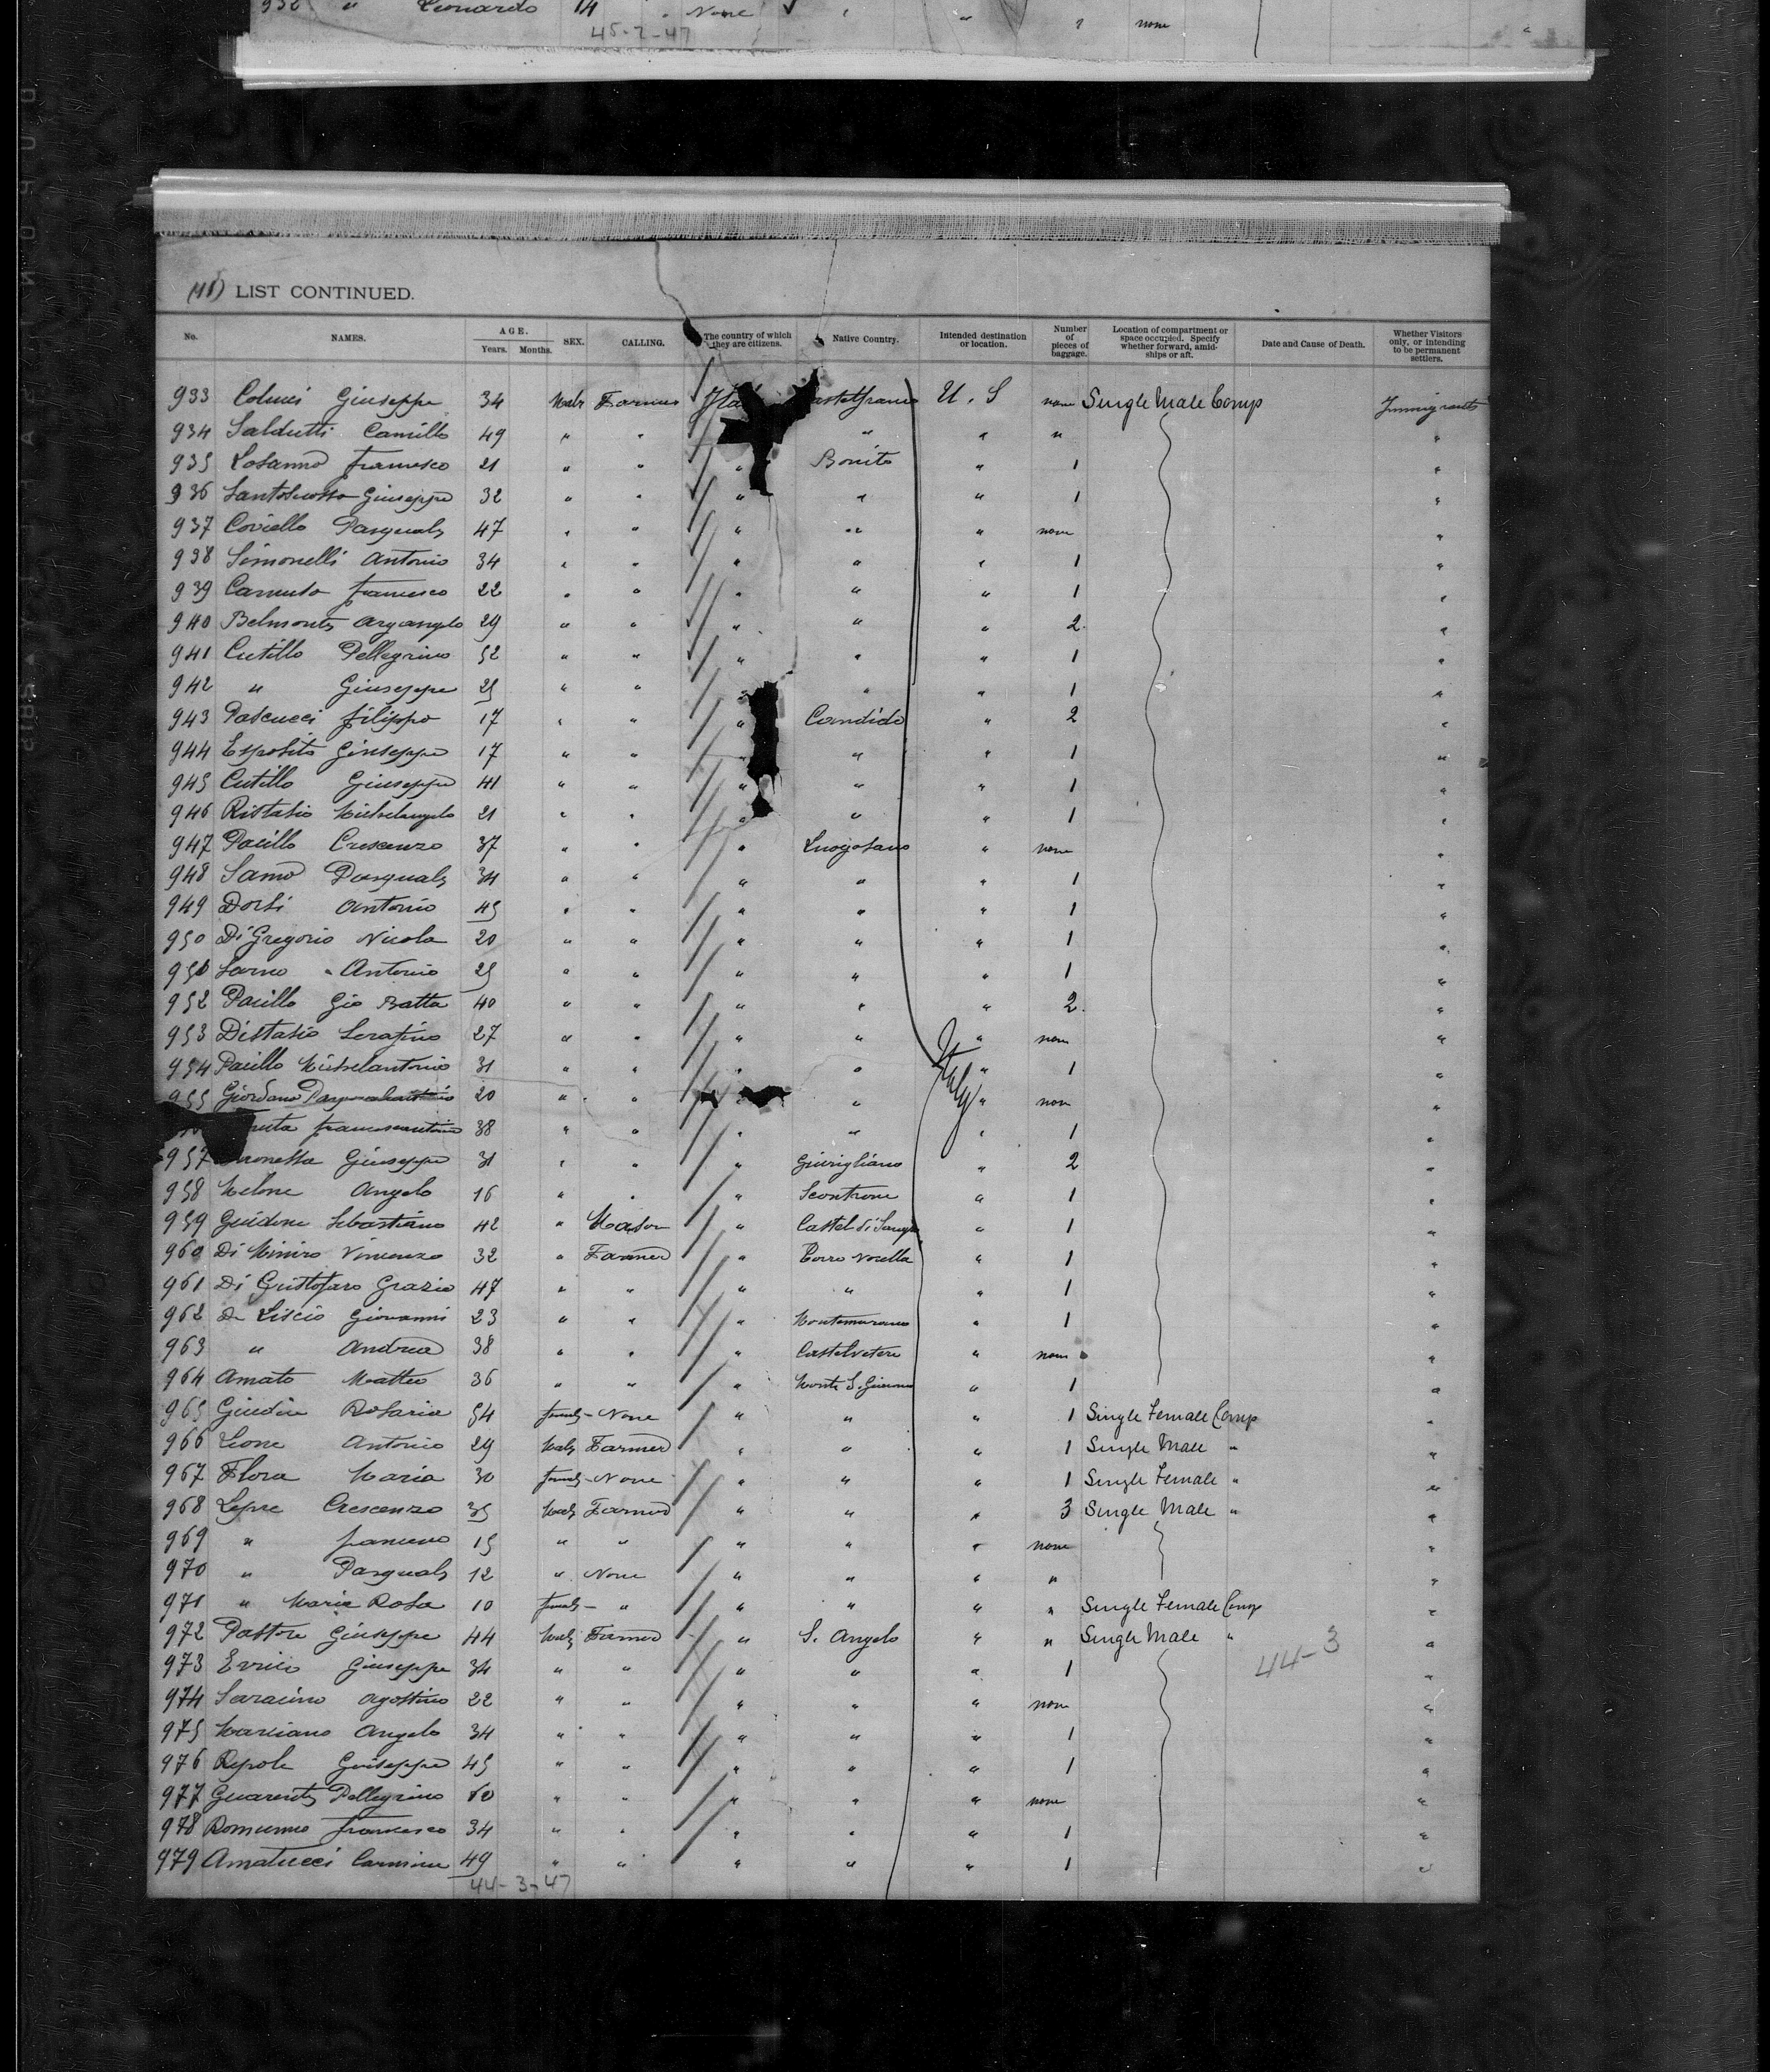 932 " Leonardo 14 " None " " " none "
45-2-47
LIST CONTINUED.
No. NAMES. AGE. Years. Months. SEX. CALLING. The country of which they are citizens. Native Country. Intended destination or location. Number of pieces of baggage. Location of compartment or space occupied. Specify whether forward, amidships or aft. Date and Cause of Death. Whether Visitors only, or intending to be permanent settlers.
933 Giuseppe 34 Male Farmer U. S none Single Male Comp Immigrants
934 Saldutti Camillo 49 " " " " " "
935 Losanno Francesco 21 " " " Bonito " 1 "
936 Giuseppe 32 " " " " " 1 "
937 Coviello Pasquale 47 " " " " " none "
938 Simonelli Antonio 34 " " " " " 1 "
939 Francesco 22 " " " " " 1 "
940 Belmonte 29 " " " " " 2 "
941 Cutillo Pellegrino 52 " " " " " 1 "
942 " Giuseppe 25 " " " " " 1 "
943 Pascucci Filippo 17 " " " Candido " 2 "
944 Esposito Giuseppe 17 " " " " 1 "
945 Cutillo Giuseppe 41 " " " " " 1 "
946 Michelangelo 21 " " " " " 1 "
947 Pacillo Crescenzo 37 " " " Luogosano " none "
948 Pasquale 34 " " " " " 1 "
949 Dorsi Antonio 45 " " " " " 1 "
950 Di Gregorio Nicola 20 " " " " " 1 "
951 Sarno Antonio 25 " " " " " 1 "
952 Pacillo Gio Batta 40 " " " " " 2 "
953 Distasio Serafino 27 " " " " " none "
954 Pacillo Michelantonio 31 " " " " " 1 "
Italy
955 Giordano 20 " " " " " none "
38 " " " " " 1 "
957 Giuseppe 31 " " " Giurigliano " 2 "
958 Melone Angelo 16 " " " Scontrone " 1 "
959 Guidone Sebastiano 42 " Mason " Castel di Sangro " 1 "
960 Vincenzo 32 " Farmer " " 1 "
961 Di Cristofaro Grazio 47 " " " " " 1 "
962 De Liscio Giovanni 23 " " " Montemarano " 1 "
963 " Andrea 38 " " " Castelvetere " none "
964 Amato Matteo 36 " " " " 1 "
965 Rosaria 54 Female None " " " 1 Single Female Comp "
966 Leone Antonio 29 Male Farmer " " " 1 Single Male " "
967 Flora Maria 30 Female None " " " 1 Single Female " "
968 Lepre Crescenzo 35 Male Farmer " " " 3 Single Male " "
969 " 15 " " " " " none "
970 " Pasquale 12 " None " " " " "
971 " Maria Rosa 10 Female " " " " " Single Female Comp "
972 Pastore Giuseppe 44 Male Farmer " S. Angelo " " Single Male " "
44-3
973 Errico Giuseppe 34 " " " " " 1 "
974 Saracino Agostino 22 " " " " " none "
975 Marciano Angelo 34 " " " " " 1 "
976 Repole Giuseppe 45 " " " " " 1 "
977 Guarente Pellegrino " " " " " none "
978 Francesco 34 " " " " " 1 "
979 Amatucci Carmine 49 " " " " " 1 "
44-3-47